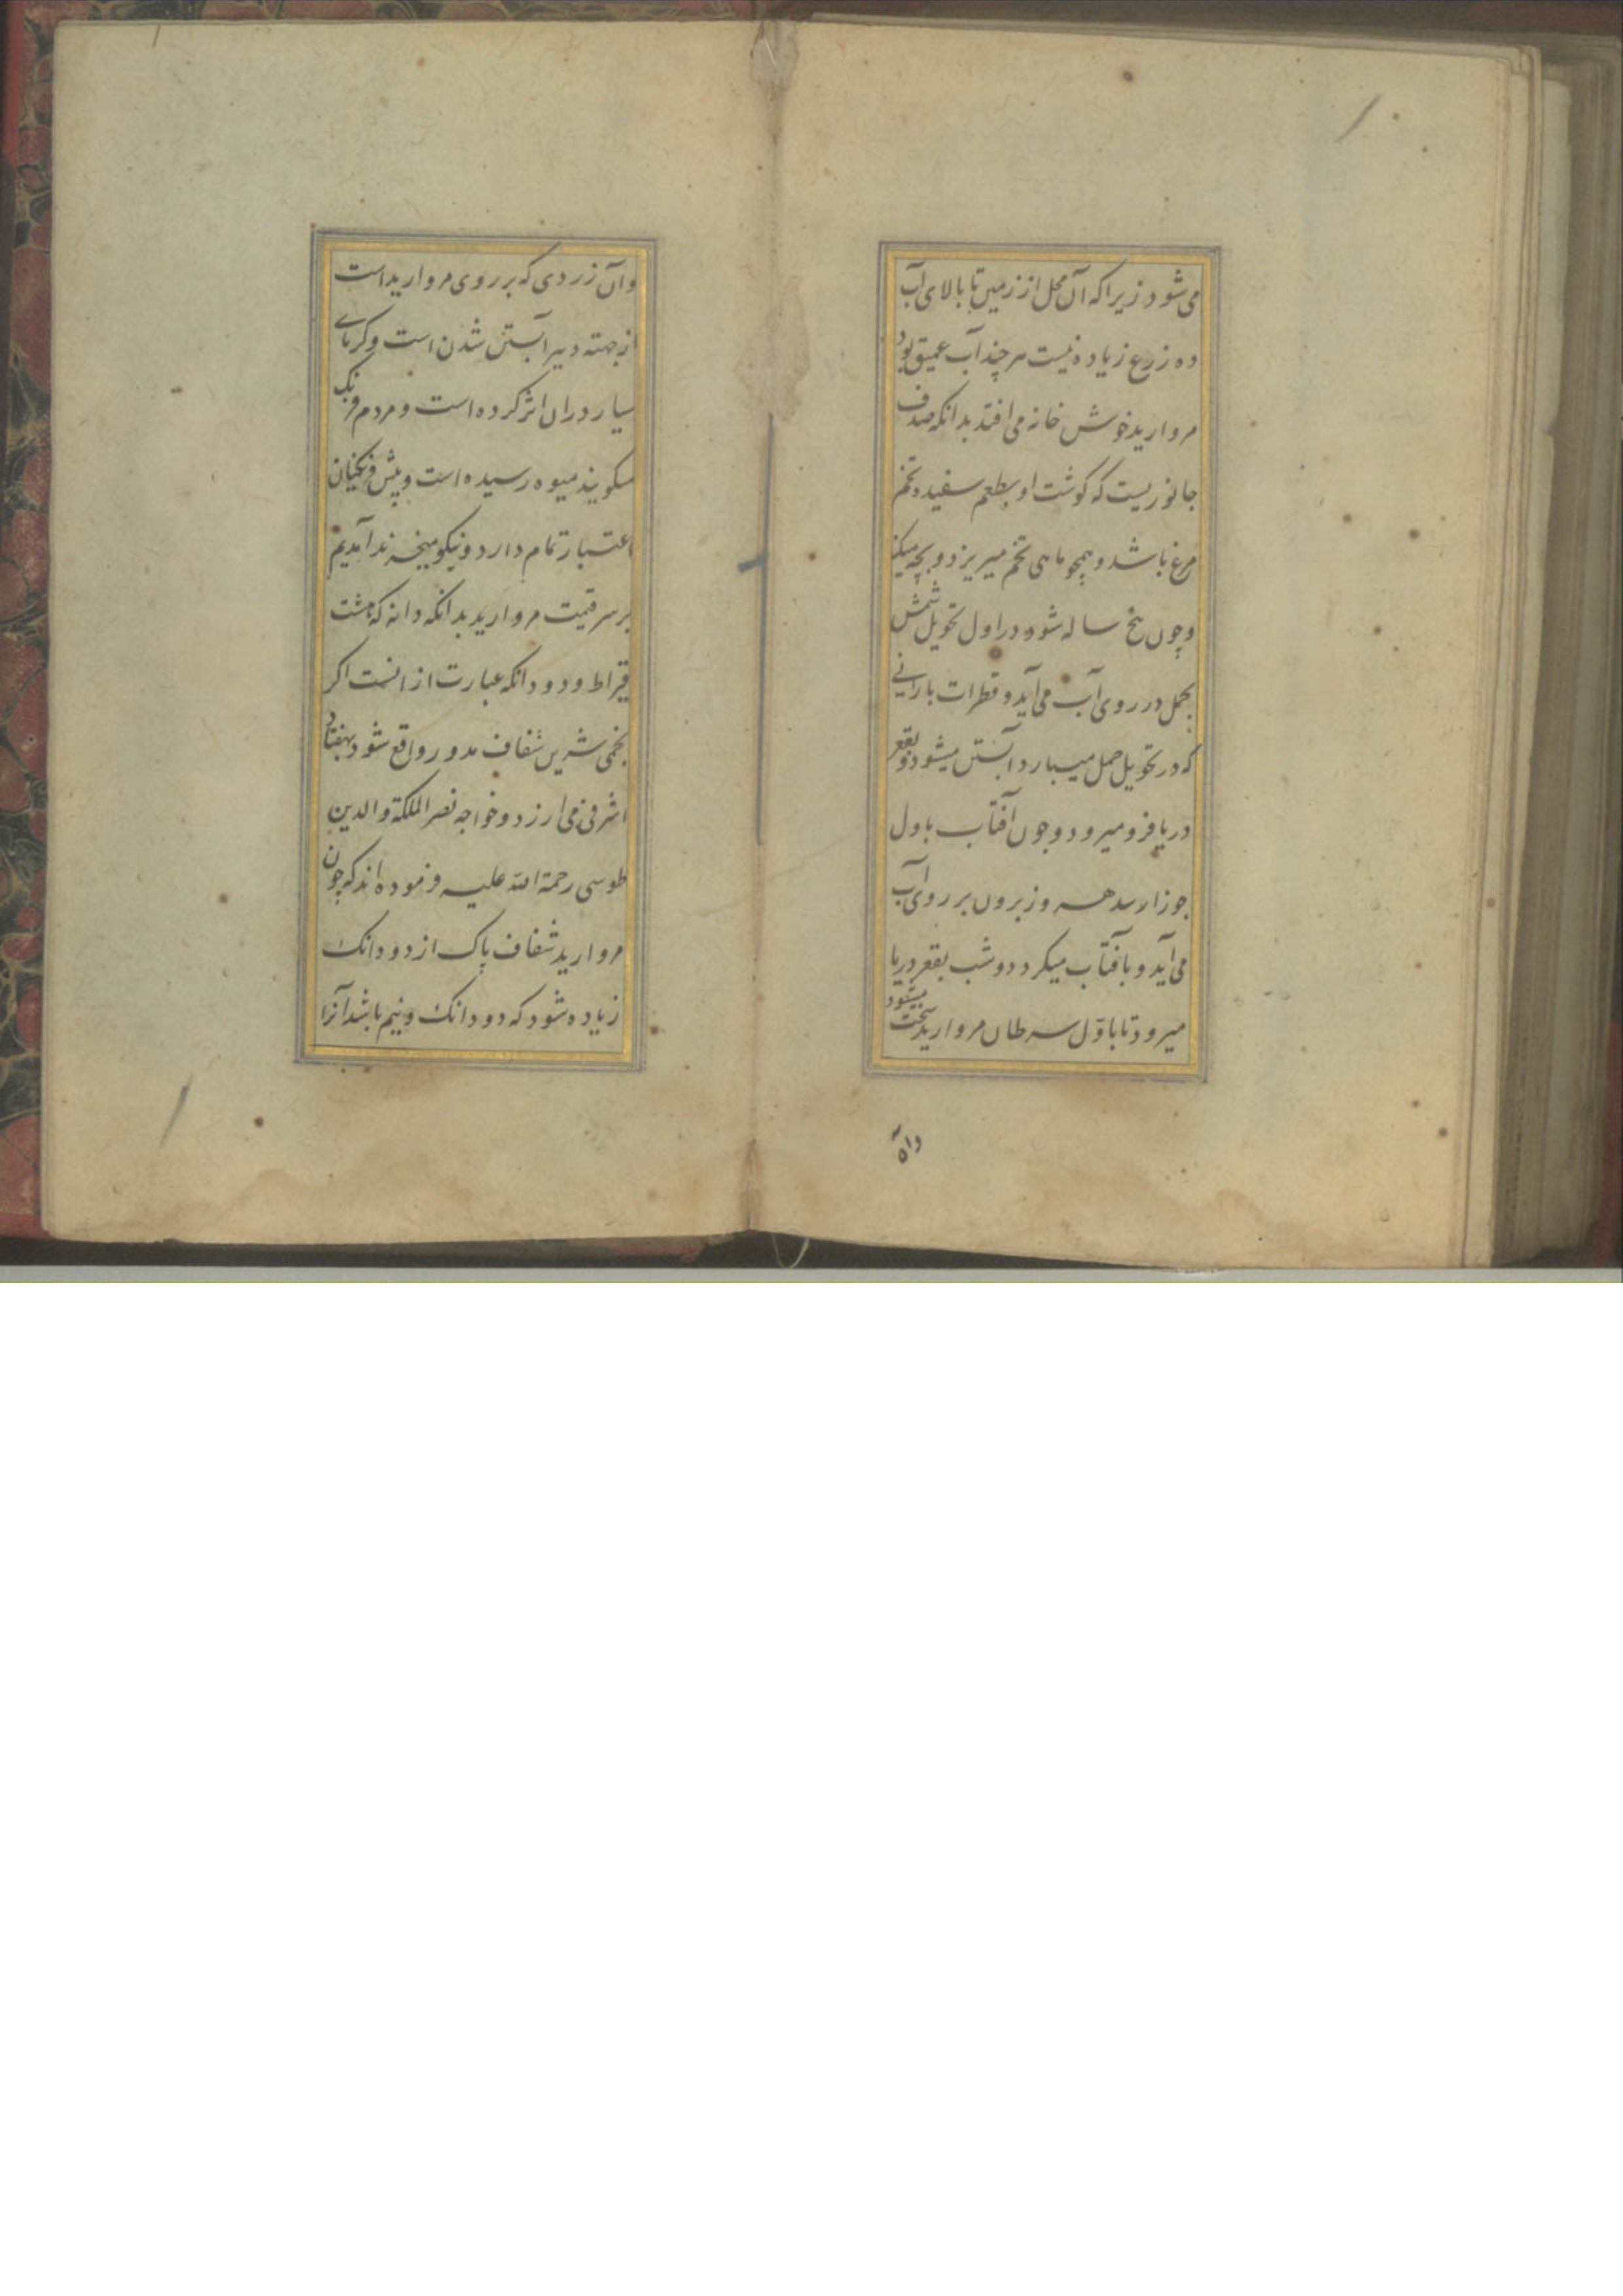 می‌شود زیرا که آن محل از زمین تا بالای آب
ده زرع زیاده نیست هر چند آب عمیق بود
مروارید خوش خانه می افتد بدانکه صدف
جانوریست که کوشت او بطعم سفیده تخم
مرغ باشد و همچو ماهی تخم میریزد و بچه میکند
و چون پنج ساله شود و در اول تحویل شمش
بحمل در روی آب می آید و قطرات بارانی
که در تحویل حمل میبارد آبستن میشود و بقعر
دریا فرو میرود و چون آفتاب باول
جوزا رسد هر روز برون بر روی آب
می آید و با آفتاب میکردد و شب بقعر دریا
میرود تا باول سرطان مروارید سخت میشود
وآن
وآن زردی که بر روی مروارید است
از جهته دیر آبستن شدن است و کرمای
بسیار در ان اثر کرده است و مردم فرنک
میکویند میوه رسیده است و پیش فرنکیان
اعتبار تمام دارد و نیکو میخرند آمدیم
بر سر قیمت مروارید بدانکه دانه که هشت
قیراط و دو دانکه عبارت از انست اکر
نجمی شیرین شفاف مدور واقع شود بهفتاد
اشرفی می ارزد و خواجه نصر الملکة والدین
طوسی رحمة الله علیه فرموده اند که چون
مروارید شفاف پاک از دو دانک
زیاده شود که دو دانک و نیم باشد آنرا